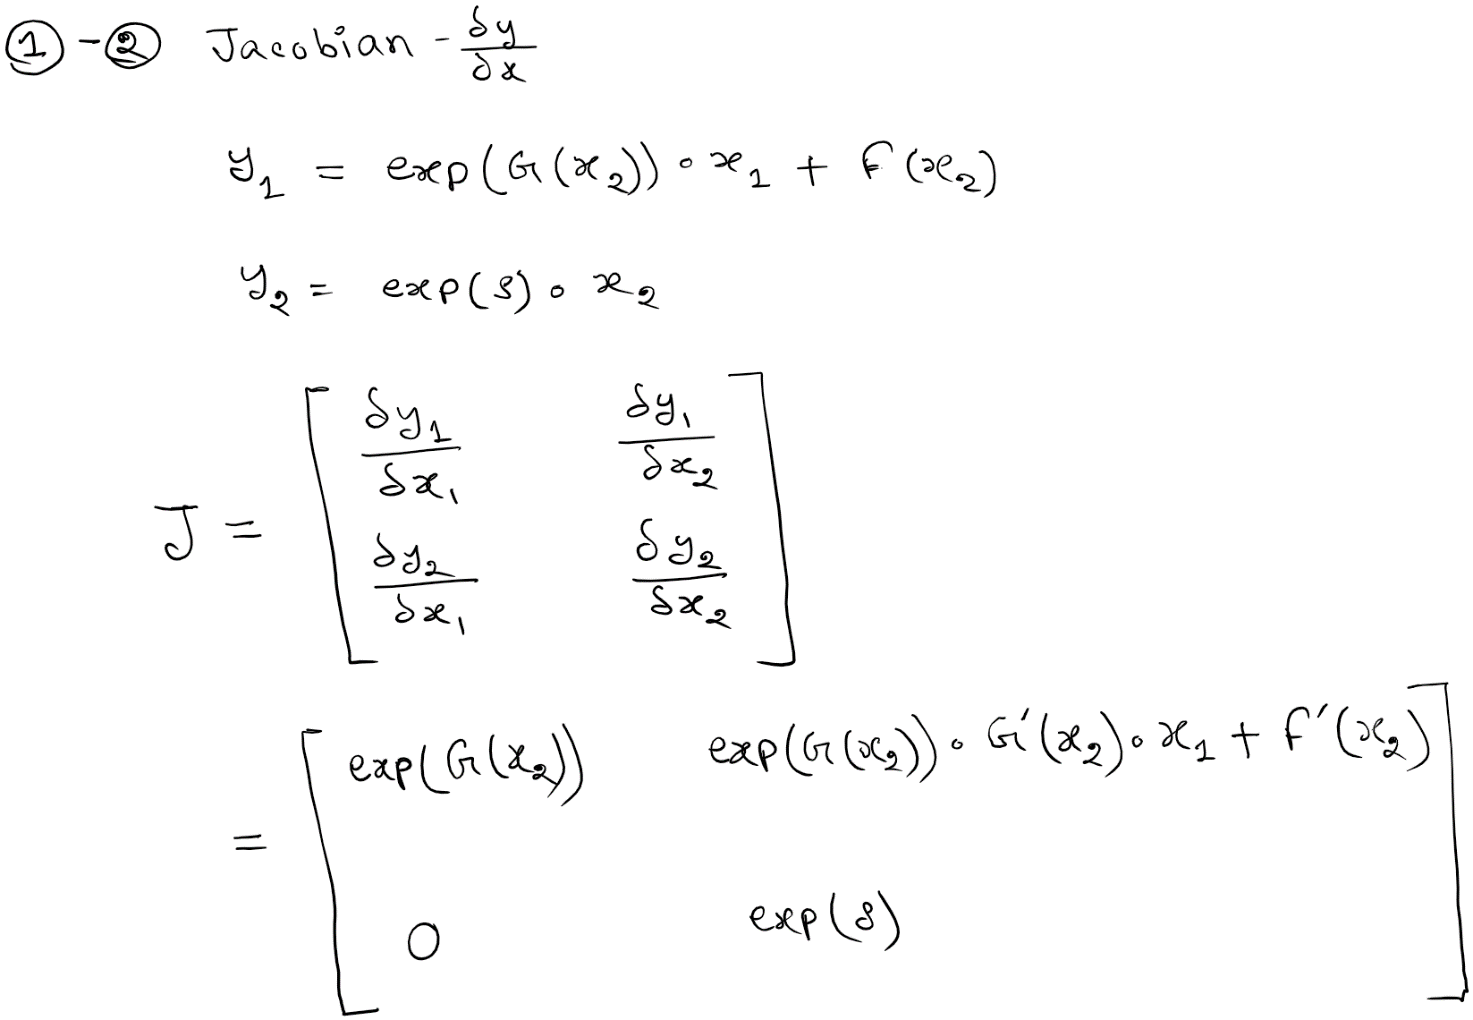 ① - ② Jacobian - δy/∂x
y₁ = exp(G(x₂)) ∘ x₁ + F(x₂)
y₂ = exp(s) ∘ x₂
J = [ δy₁/δx₁ δy₁/δx₂
δy₂/δx₁ δy₂/δx₂ ]
= [ exp(G(x₂)) exp(G(x₂)) ∘ G′(x₂) ∘ x₁ + F′(x₂)
0 exp(s) ]